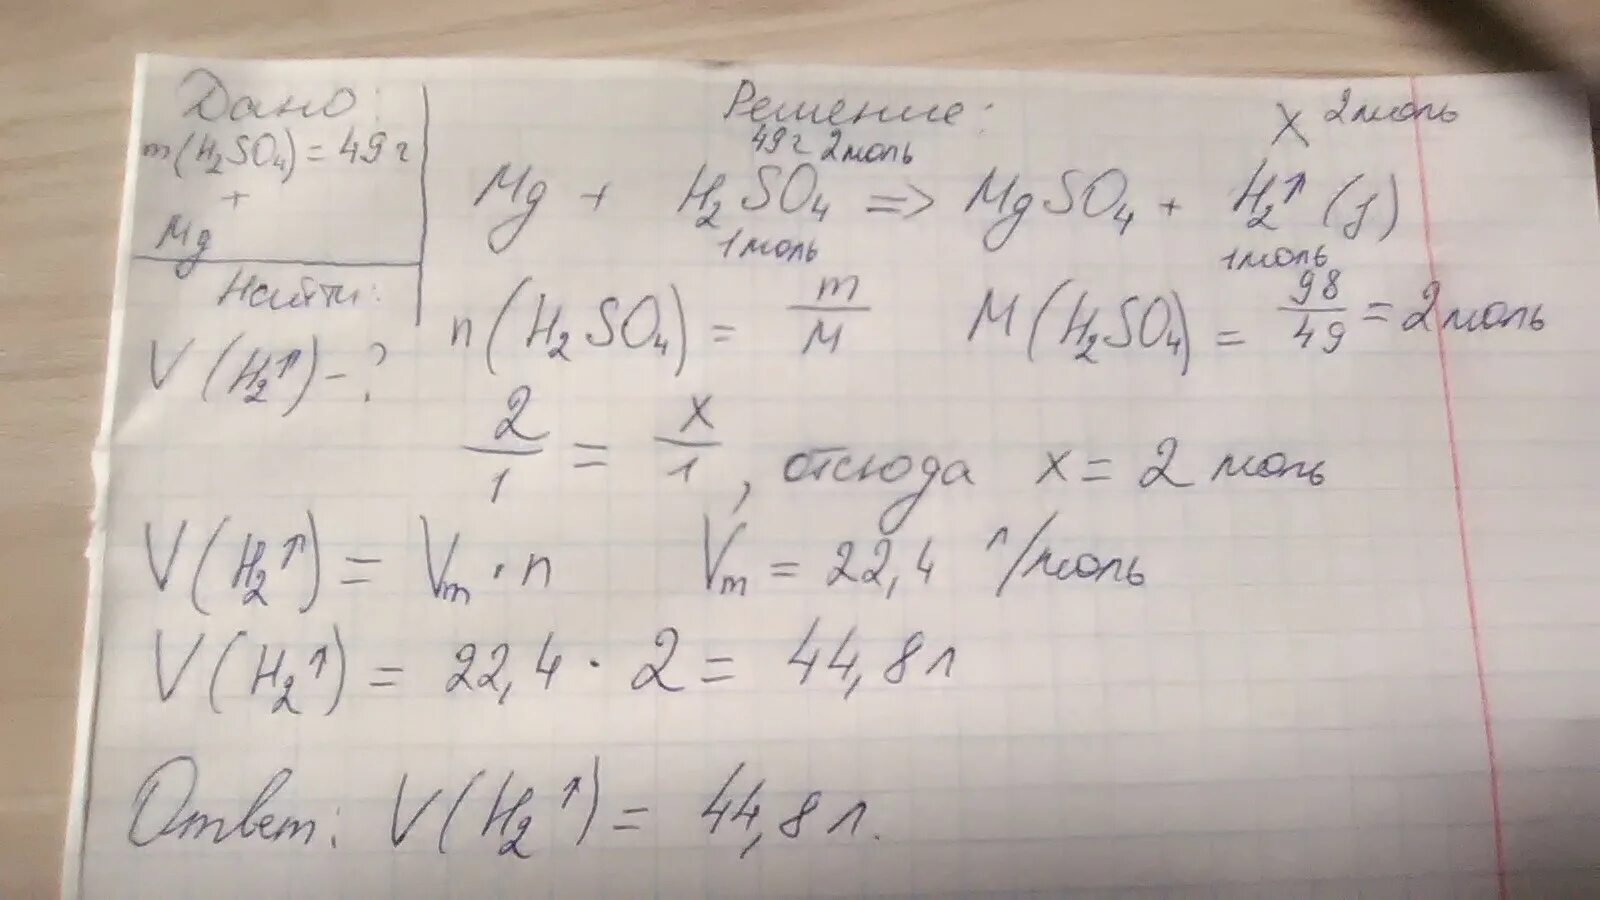 Дано:
m(H₂SO₄) = 49 г
+
Mg
Найти:
V(H₂↑) - ?
Решение:
49 г 2 моль
x 2 моль
Mg + H₂SO₄ => MgSO₄ + H₂↑ (г)
1 моль
1 моль
n(H₂SO₄) = m/M M(H₂SO₄) = 98/49 = 2 моль
2/1 = x/1, отсюда x = 2 моль
V(H₂↑) = Vm · n Vm = 22,4 л/моль
V(H₂↑) = 22,4 · 2 = 44,8 л
Ответ: V(H₂↑) = 44,8 л.